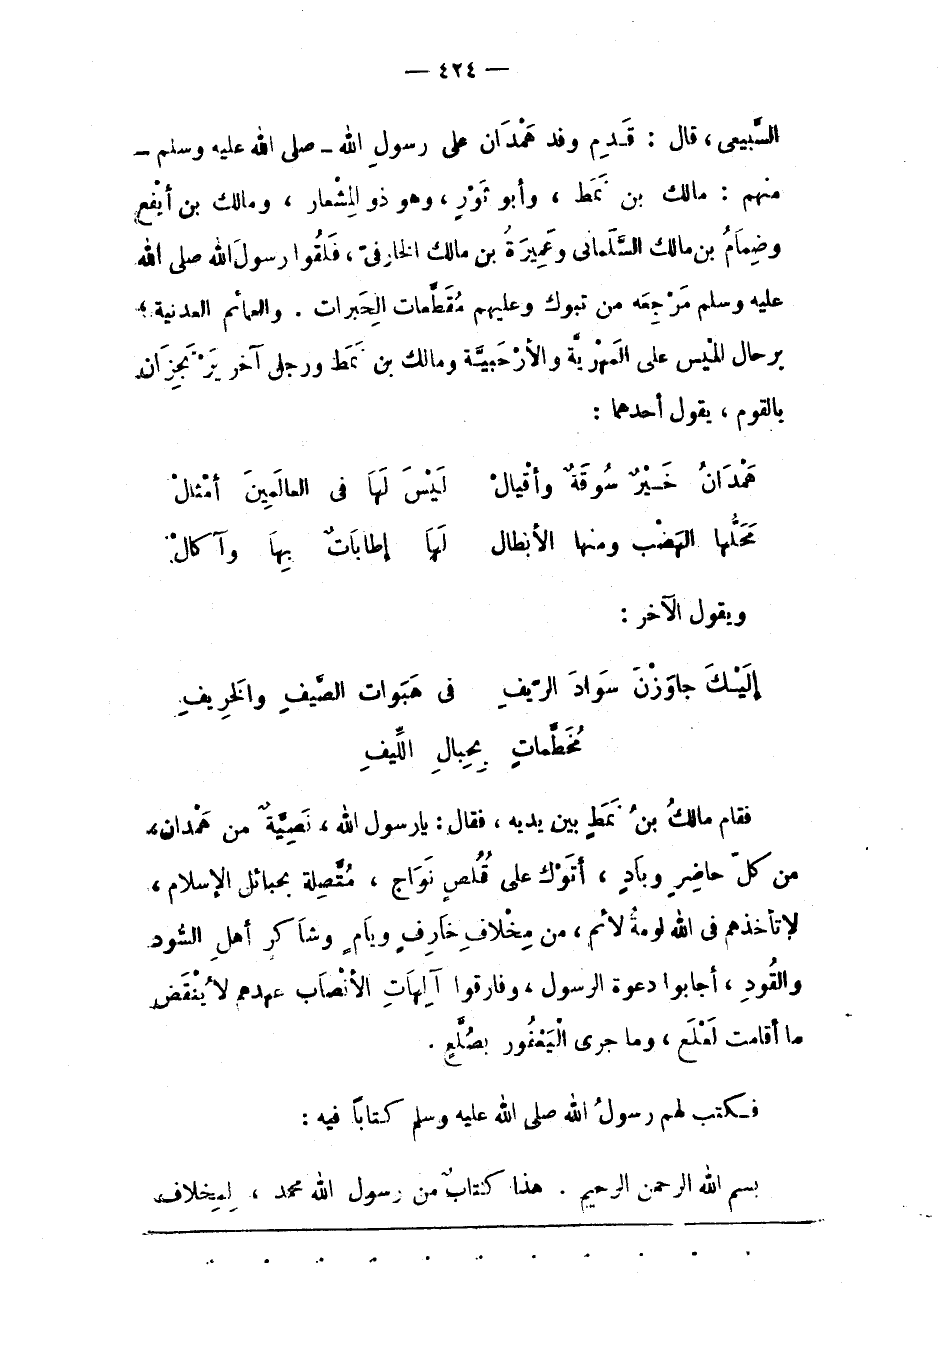 — ٤٢٤ —
السَّبيعى، قال : قَـدِم وفد هَمْدَان على رسولِ الله ـ صلى الله عليه وسلم ـ
منهم : مالك بن نَمَط ، وأبو ثَوْرٍ ، وهو ذو المِشْعار ، ومالك بن أيْفع
وضِمَامُ بن مالك السَّلَمانى وعَمِيرَةُ بن مالك الخارفىّ ، فَلَقُوا رسولَ الله صلى الله
عليه وسلم مَرْجِعَه من تبوك وعليهم مُقَطَّعات الحِبَرات . والعمائم العدنية ؛
برحال المَيْس على المَهْرِيَّة والأرْحَبيَّة ومالك بن نَمَط ورجل آخر يَرْتَجِزَان
بالقوم ، يقول أحدهما :
هَمْدَانُ خَـيْرٌ سُوقَةٌ وأقْيالْ لَيْسَ لَهَا فى العالَمِينَ أمْثالْ
مَحَلُّها الهَضْب ومنها الأبطال لَهَا إطابَاتٌ بِهَا وآكالْ
ويقول الآخر :
إلَيْـكَ جاوَزْنَ سَوَادَ الرّيفِ فى هَبَوات الصَّيفِ والخَرِيفِ
مُخَطَّماتٍ بِحِبالِ اللِّيفِ
فقام مالكُ بنُ نَمَطٍ بين يديه ، فقال : يارسول الله ، نَصِيَّةٌ من هَمْدان،
من كلّ حاضِرٍ وبادٍ ، أتَوْك على قُلُصٍ نَوَاجٍ ، مُتَّصِلة بحبائل الإسلام ،
لاتأخذهم فى الله لومةُ لائم ، من مِخْلافِ خَارِفٍ ويَامٍ وشاكرٍ أهلِ السُّود
والقُودِ ، أجابوا دعوة الرسول ، وفارقوا آلِهَاتِ الأنْصَاب عهدهم لا يُنْقَض
ما أقامت لَعْلَع ، وما جرى الْيَعْفُور بصُلَّعٍ .
فـكتب لهم رسولُ الله صلى الله عليه وسلم كتاباً فيه :
بسم الله الرحمن الرحيم . هذا كتابٌ من رسول الله محمد ، لِمِخلاف